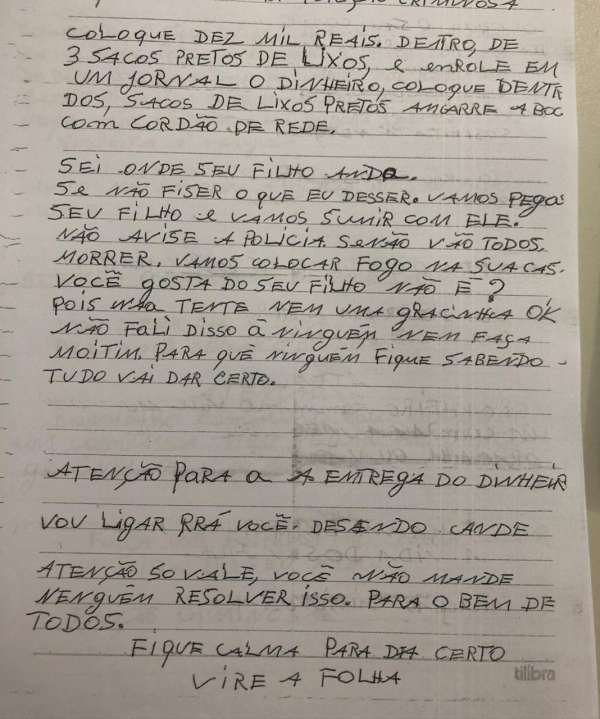 CRIMINOSA
COLOQUE DEZ MIL REAIS. DENTRO, DE
3 SACOS PRETOS DE LIXOS, e enROLE EM
UM JORNAL O DINHEIRO, COLOQUE DENTR
DOS, SACOS DE LIXOS PRETOS AMARRE A BOC
com CORDÃO. DE REDE.
SEI ONDE SEU FILHO ANDA.
Se NÃO FISER O QUE EU DESSER. VAMOS PEGAS
SEU FILHO e VAMOS SUMIR COM ELE.
NÃO AVISE A POLICIA. SENÃO VÃO TODOS
MORRER. VAMOS COLOCAR FOGO NA SUA CAS.
VOCÊ GOSTA DO SEU FILHO NÃO É?
POIS TENTE NEM UMA GRACINHA OK
NÃO FALI DISSO Á NINGUÉM NEM FAÇA
MOITIM. PARA QUÊ NINGUÉM FIQUE SABENDO -
TUDO VAI DAR CERTO.
ATENÇÃO PARA a A ENTREGA DO DINHEIR
VOU LIGAR PRÁ VOCÊ. DESENDO
ATENÇÃO SO VALE, VOCÊ NÃO MANDE
NENGUÉM RESOLVER ISSO. PARA O BEM DE
TODOS.
FIQUE CALMA PARA DA CERTO
VIRE A FOLHA
tilibra